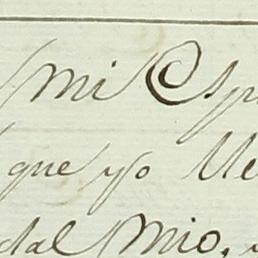 mi Esp
que yo lle
dal mio,